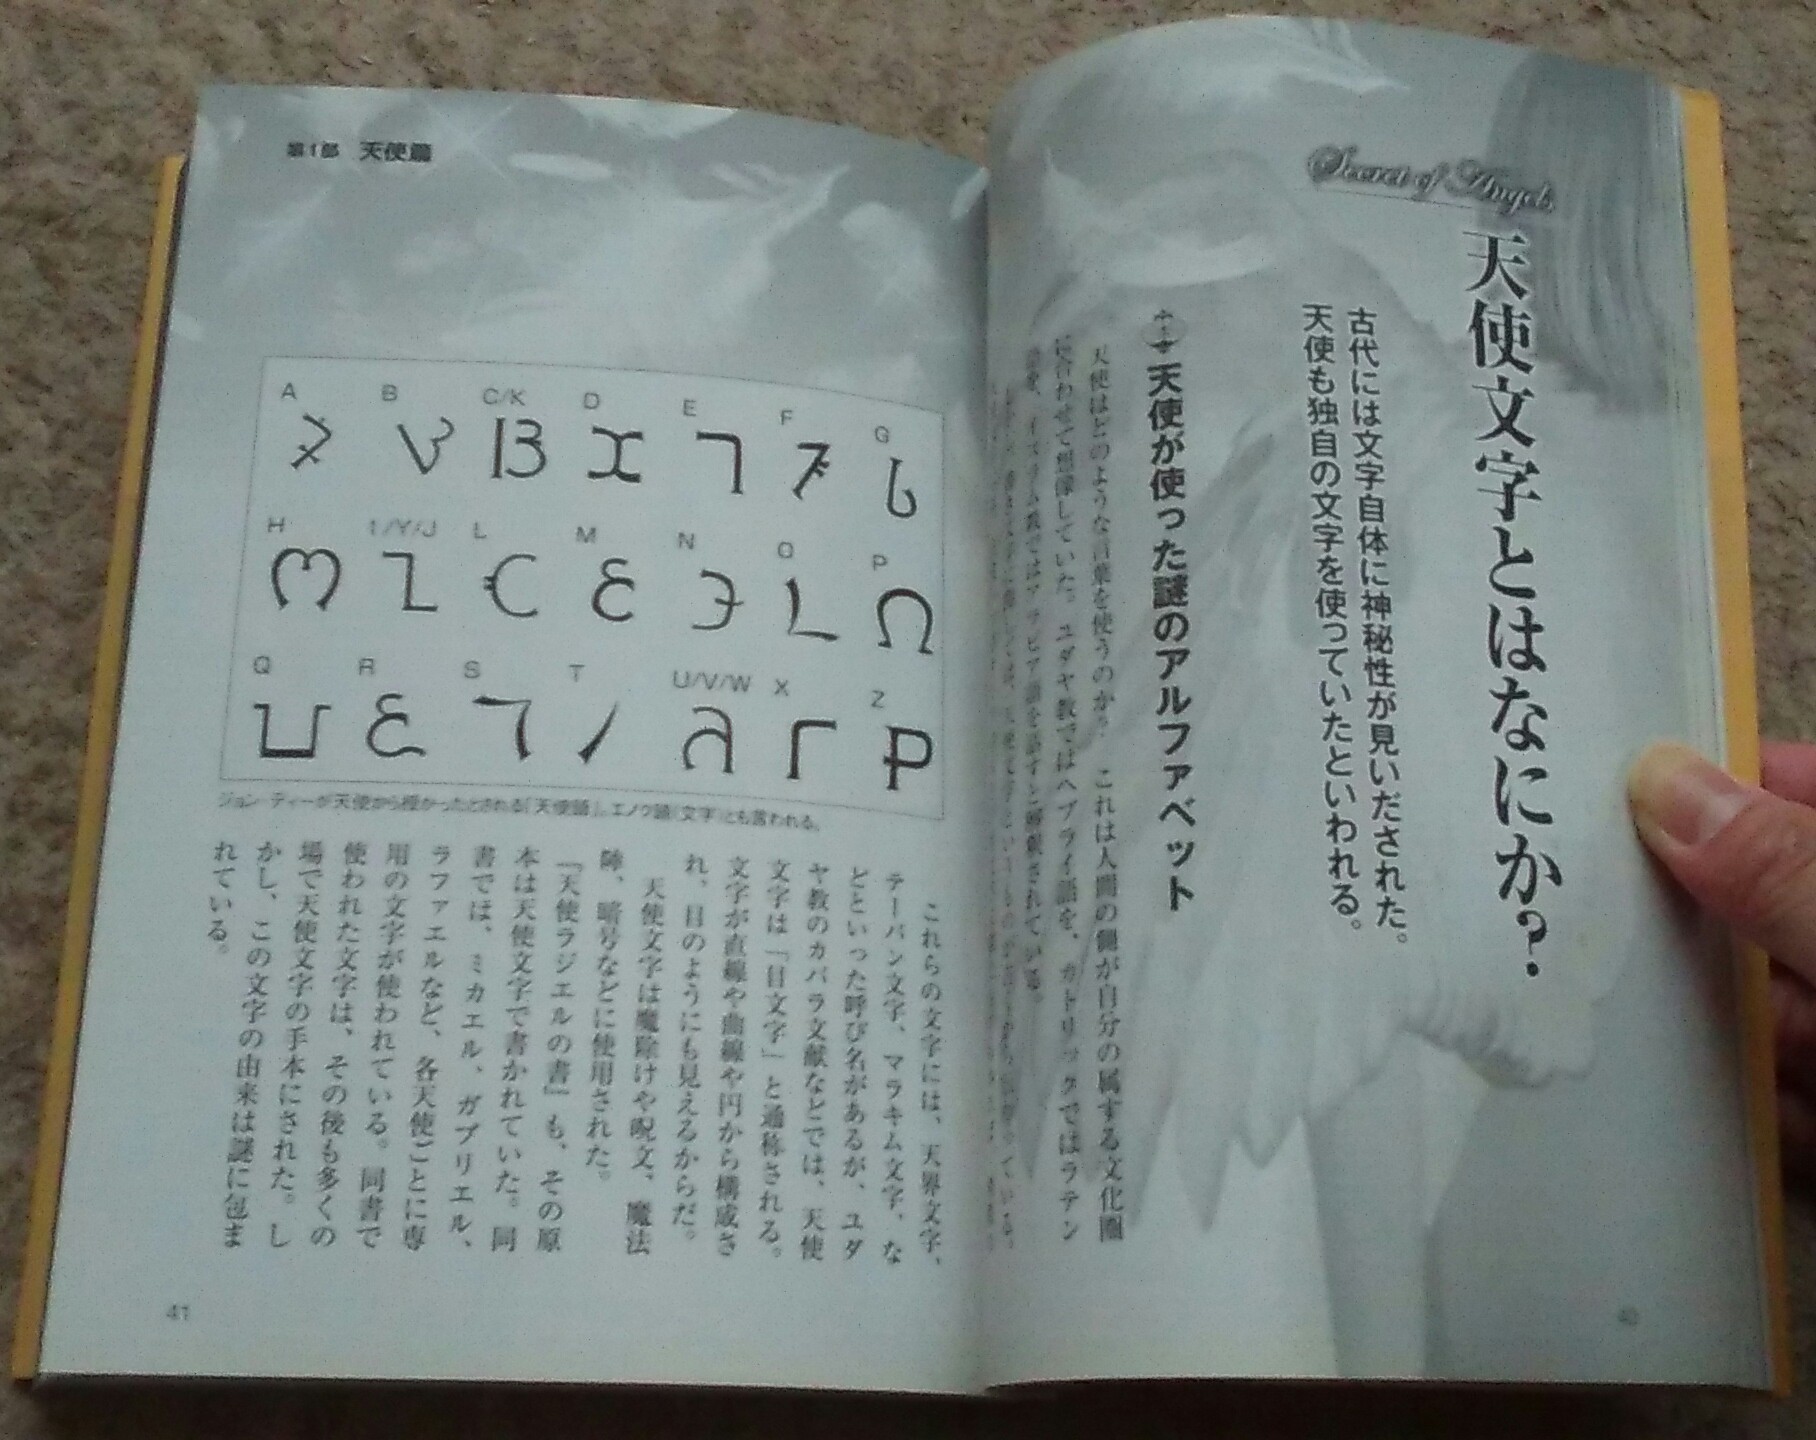 Secret of Angels
天使文字とはなにか?
古代には文字自体に神秘性が見いだされた。
天使も独自の文字を使っていたといわれる。
天使が使った謎のアルファベット
天使はどのような言葉を使うのか? これは人間の側が自分の属する文化圏
に合わせて想像していた。ユダヤ教ではヘブライ語を、カトリックではラテン
語を、イスラム教ではアラビア語を話すと解釈されている。
40
第1部 天使篇
A B C/K D E F G
H I/Y/J L M N O P
Q R S T U/V/W X Z
ジョン・ディーが天使から授かったとされる「天使語」。エノク語(文字)とも言われる。
これらの文字には、天界文字、
テーバン文字、マラキム文字、な
どといった呼び名があるが、ユダ
ヤ教のカバラ文献などでは、天使
文字は「目文字」と通称される。
文字が直線や曲線や円から構成さ
れ、目のようにも見えるからだ。
天使文字は魔除けや呪文、魔法
陣、暗号などに使用された。
『天使ラジエルの書』も、その原
本は天使文字で書かれていた。同
書では、ミカエル、ガブリエル、
ラファエルなど、各天使ごとに専
用の文字が使われている。同書で
使われた文字は、その後も多くの
場で天使文字の手本にされた。し
かし、この文字の由来は謎に包ま
れている。
41